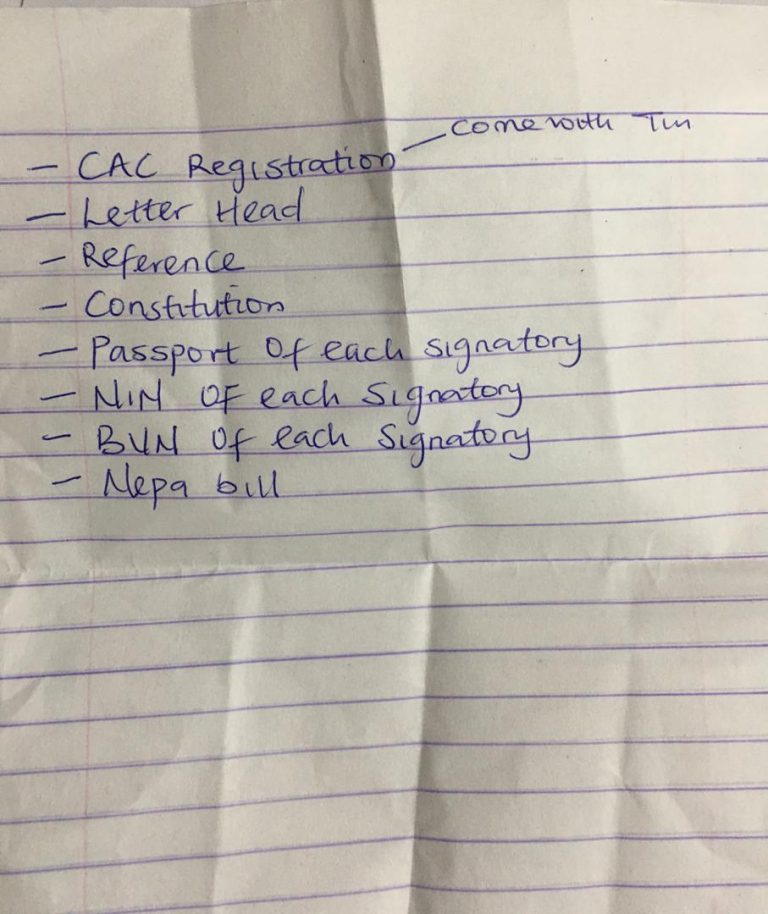 come with Tin
- CAC Registration
- Letter Head
- Reference
- Constitution
- Passport Of each signatory
- NIN OF each Signatory
- BVN Of each Signatory
- Nepa bill